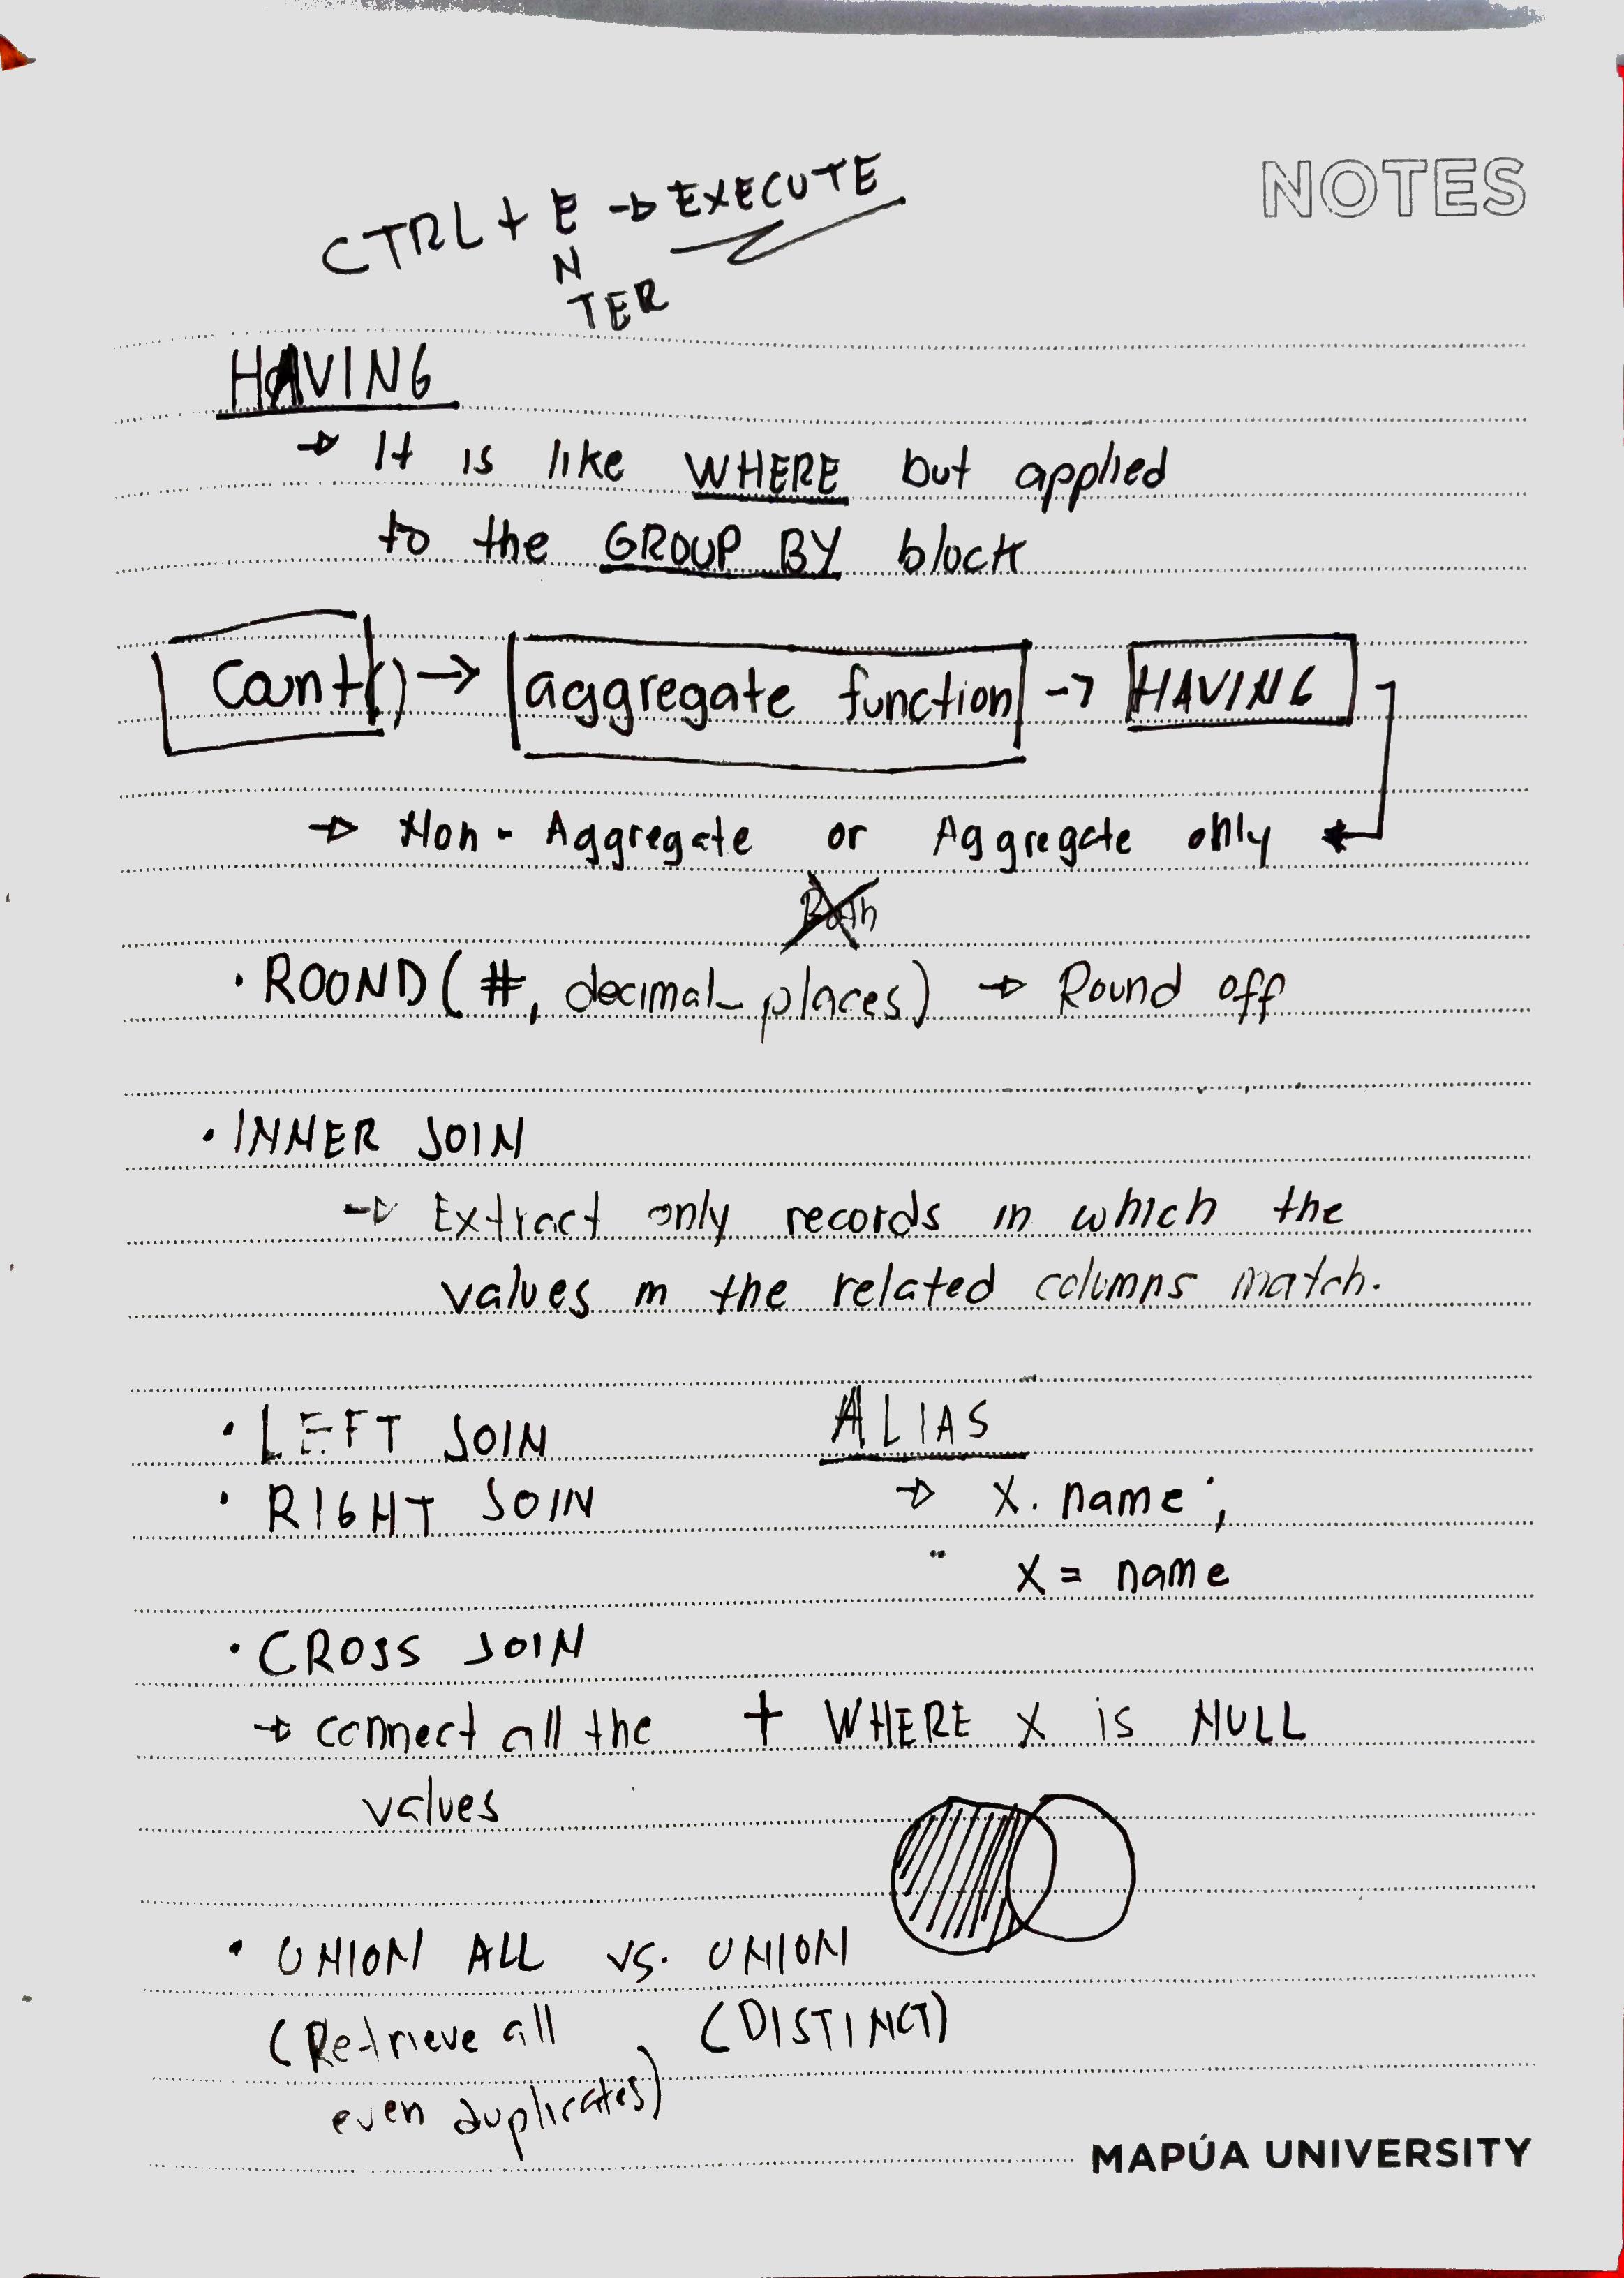 NOTES
CTRL + E → EXECUTE
N
TER
HAVING
→ It is like WHERE but applied
to the GROUP BY block
Count() → aggregate function → HAVING
→ Non-Aggregate or Aggregate only
Both
• ROUND(#, decimal_places) → Round off
• INNER JOIN
→ Extract only records in which the
values in the related columns match.
• LEFT JOIN
• RIGHT JOIN
ALIAS
→ X. name ;
X = name
• CROSS JOIN
→ connect all the
values
+ WHERE X is NULL
• UNION ALL vs. UNION
(Retrieve all
even duplicates)
(DISTINCT)
MAPÚA UNIVERSITY